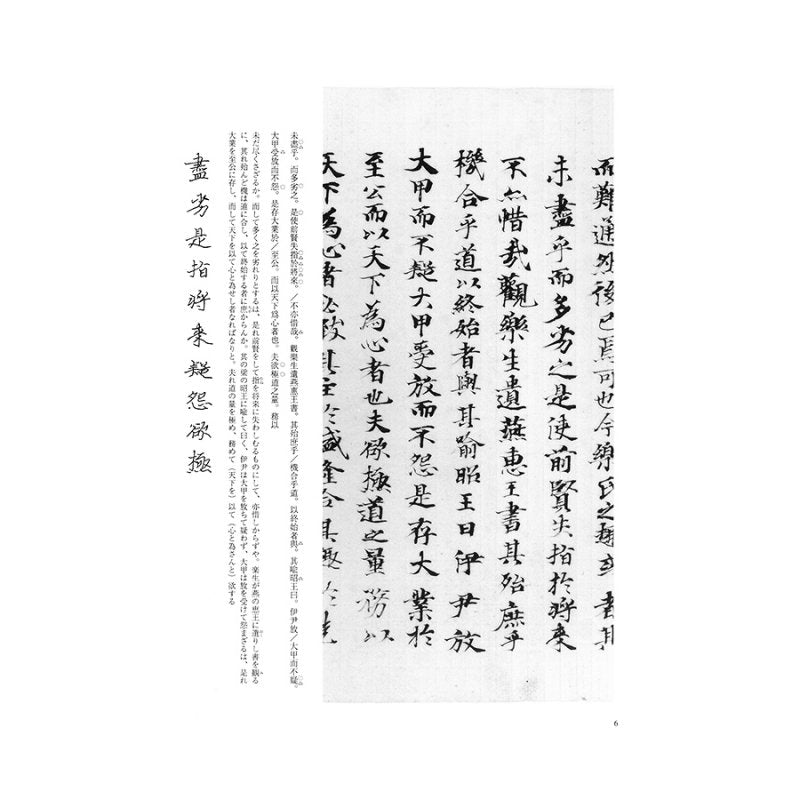 而難通然後已焉可也今樂氏之趣或者其
未盡乎而多劣之是使前賢失指於將来
不亦惜哉觀樂生遺燕惠王書其殆庶乎
機合乎道以終始者與其喻昭王曰伊尹放
大甲而不疑大甲受放而不怨是存大業於
至公而以天下為心者也夫欲極道之量務以
天下為心者必致其主於盛隆合其趣於先
未盡乎。而多劣之。是使前賢失指於將來。／不亦惜哉。觀樂生遺燕惠王書。其殆庶乎／機合乎道。以終始者與。其喩昭王曰。伊尹放／大甲而不疑。
大甲受放而不怨。是存大業於／至公。而以天下爲心者也。夫欲極道之量。務以
未だ尽くさざるか。而して多く之を劣れりとするは、是れ前賢をして指を将来に失わしむるものにして、亦惜しからずや。楽生が燕の恵王に遺りし書を観る
に、其れ殆んど機は道に合し、以て終始する者に庶からんか。其の梁の昭王に喩して曰く、伊尹は大甲を放ちて疑わず、大甲は放を受けて怨まざるは、是れ
大業を至公に存し、而して天下を以て心と為せし者なればなりと。夫れ道の量を極め、務めて（天下を）以て（心と為さんと）欲する
盡劣是指將来疑怨欲極
6